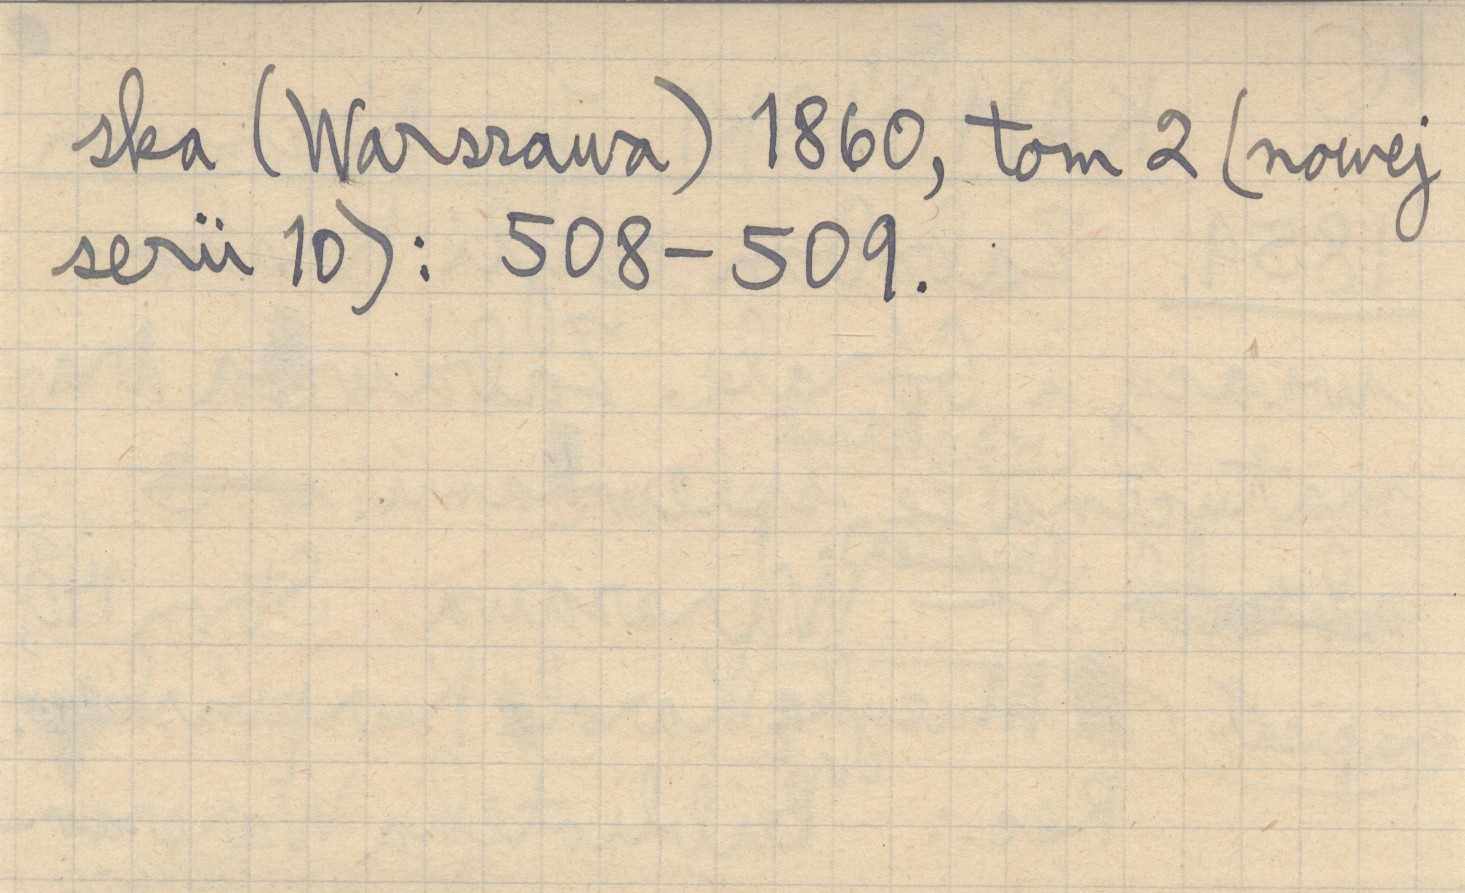 ska (Warszawa) 1860, tom 2 (nowej
serii 10): 508-509.